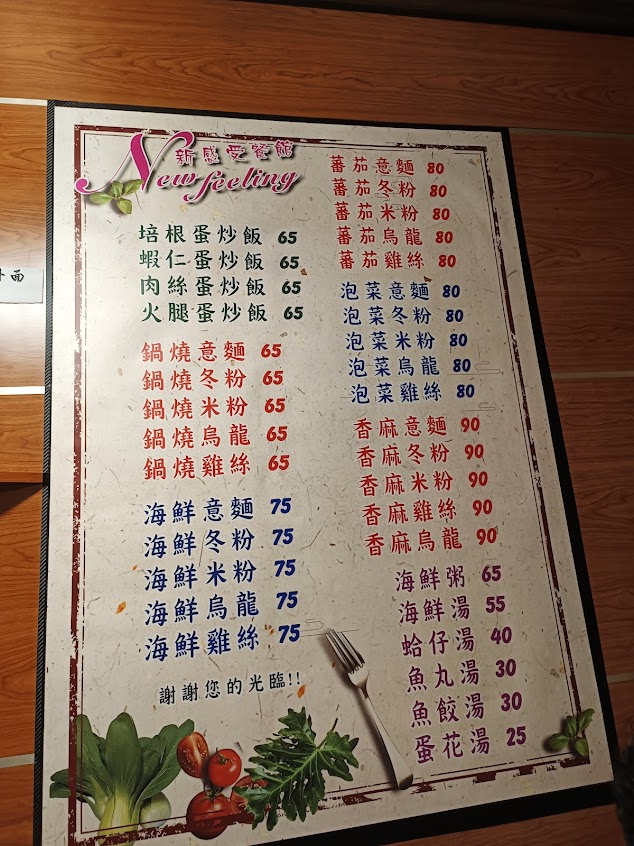 新感受餐館
New feeling
培根蛋炒飯 65
蝦仁蛋炒飯 65
肉絲蛋炒飯 65
火腿蛋炒飯 65
鍋燒意麵 65
鍋燒冬粉 65
鍋燒米粉 65
鍋燒烏龍 65
鍋燒雞絲 65
海鮮意麵 75
海鮮冬粉 75
海鮮米粉 75
海鮮烏龍 75
海鮮雞絲 75
謝謝您的光臨!!
蕃茄意麵 80
蕃茄冬粉 80
蕃茄米粉 80
蕃茄烏龍 80
蕃茄雞絲 80
泡菜意麵 80
泡菜冬粉 80
泡菜米粉 80
泡菜烏龍 80
泡菜雞絲 80
香麻意麵 90
香麻冬粉 90
香麻米粉 90
香麻雞絲 90
香麻烏龍 90
海鮮粥 65
海鮮湯 55
蛤仔湯 40
魚丸湯 30
魚餃湯 30
蛋花湯 25